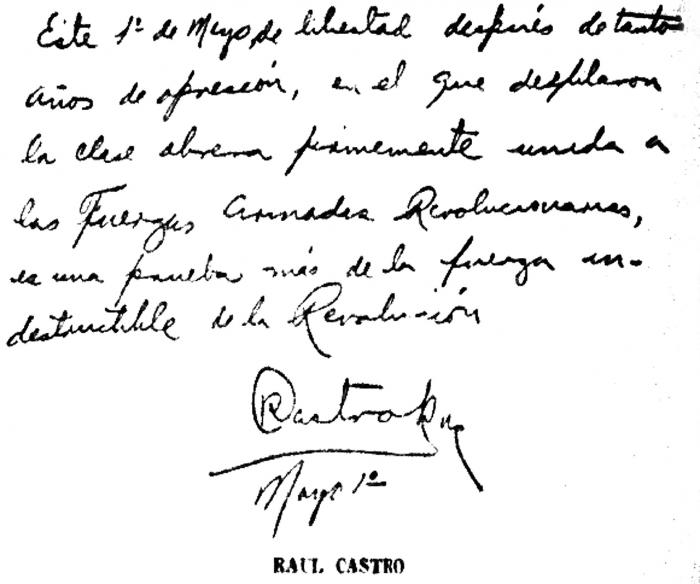 Este 1º de Mayo, de libertad después de tanto
años de opresión, en el que desfilaron
la clase obrera firmemente unida a
las Fuerzas Armadas Revolucionarias,
es una prueba más de la fuerza in-
destructible de la Revolución
RCastro Ruz
Mayo 1º
RAUL CASTRO